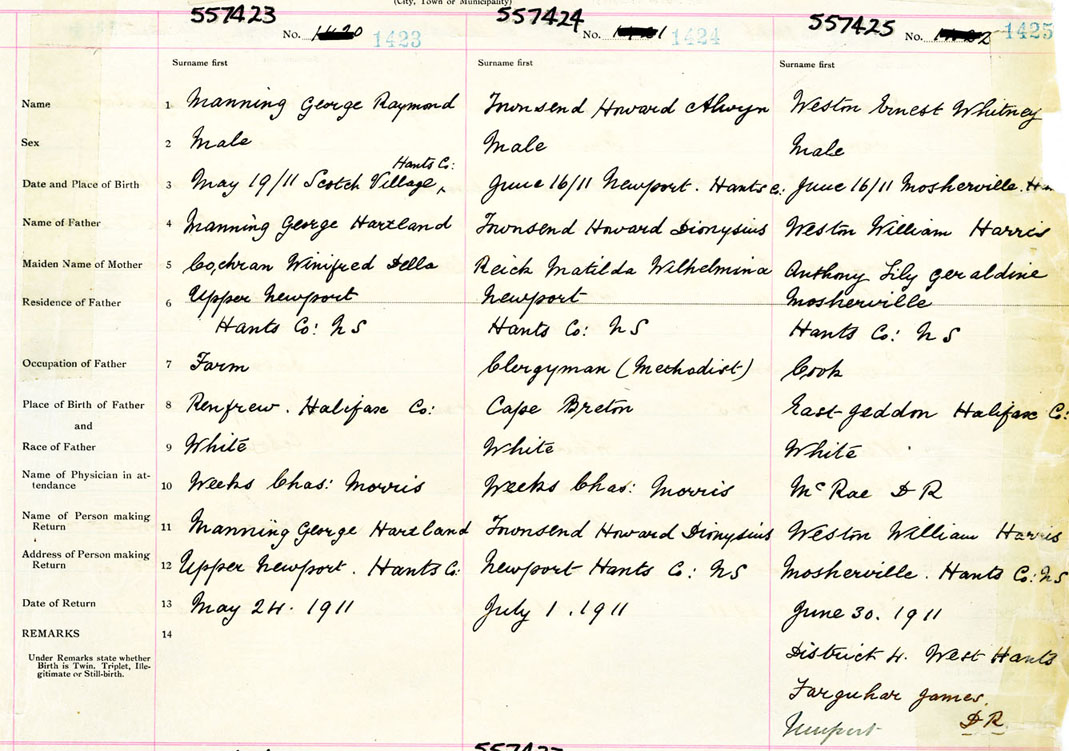 (City, Town or Municipality)
557423 557424 557425
No. 1423 No. 1424 No. 1425
Surname first Surname first Surname first
Name 1 Manning George Raymond Townsend Howard Alwyn Weston Ernest Whitney
Sex 2 Male Male Male
Hants Co:
Date and Place of Birth 3 May 19/11 Scotch Village, June 16/11 Newport. Hants Co: June 16/11 Mosherville.
Name of Father 4 Manning George Hartland Townsend Howard Dionysius Weston William Harris
Maiden Name of Mother 5 Cochran Winifred Della Reick Matilda Wilhelmina Anthony Lily Geraldine
Residence of Father 6 Upper Newport Newport Mosherville
Hants Co: NS Hants Co: NS Hants Co: NS
Occupation of Father 7 Farm Clergyman (Methodist) Cook
Place of Birth of Father 8 Renfrew. Halifax Co: Cape Breton East Jeddon Halifax Co:
and
Race of Father 9 White White White
Name of Physician in at-
tendance 10 Weeks Chas: Morris Weeks Chas: Morris McRae D R
Name of Person making
Return 11 Manning George Hartland Townsend Howard Dionysius Weston William Harris
Address of Person making
Return 12 Upper Newport. Hants Co: Newport Hants Co: NS Mosherville. Hants Co: NS
Date of Return 13 May 24. 1911 July 1. 1911 June 30. 1911
REMARKS 14
Under Remarks state whether
Birth is Twin, Triplet, Ille-
gitimate or Still-birth.
District 4. West Hants
Farquhar James.
Newport D.R.